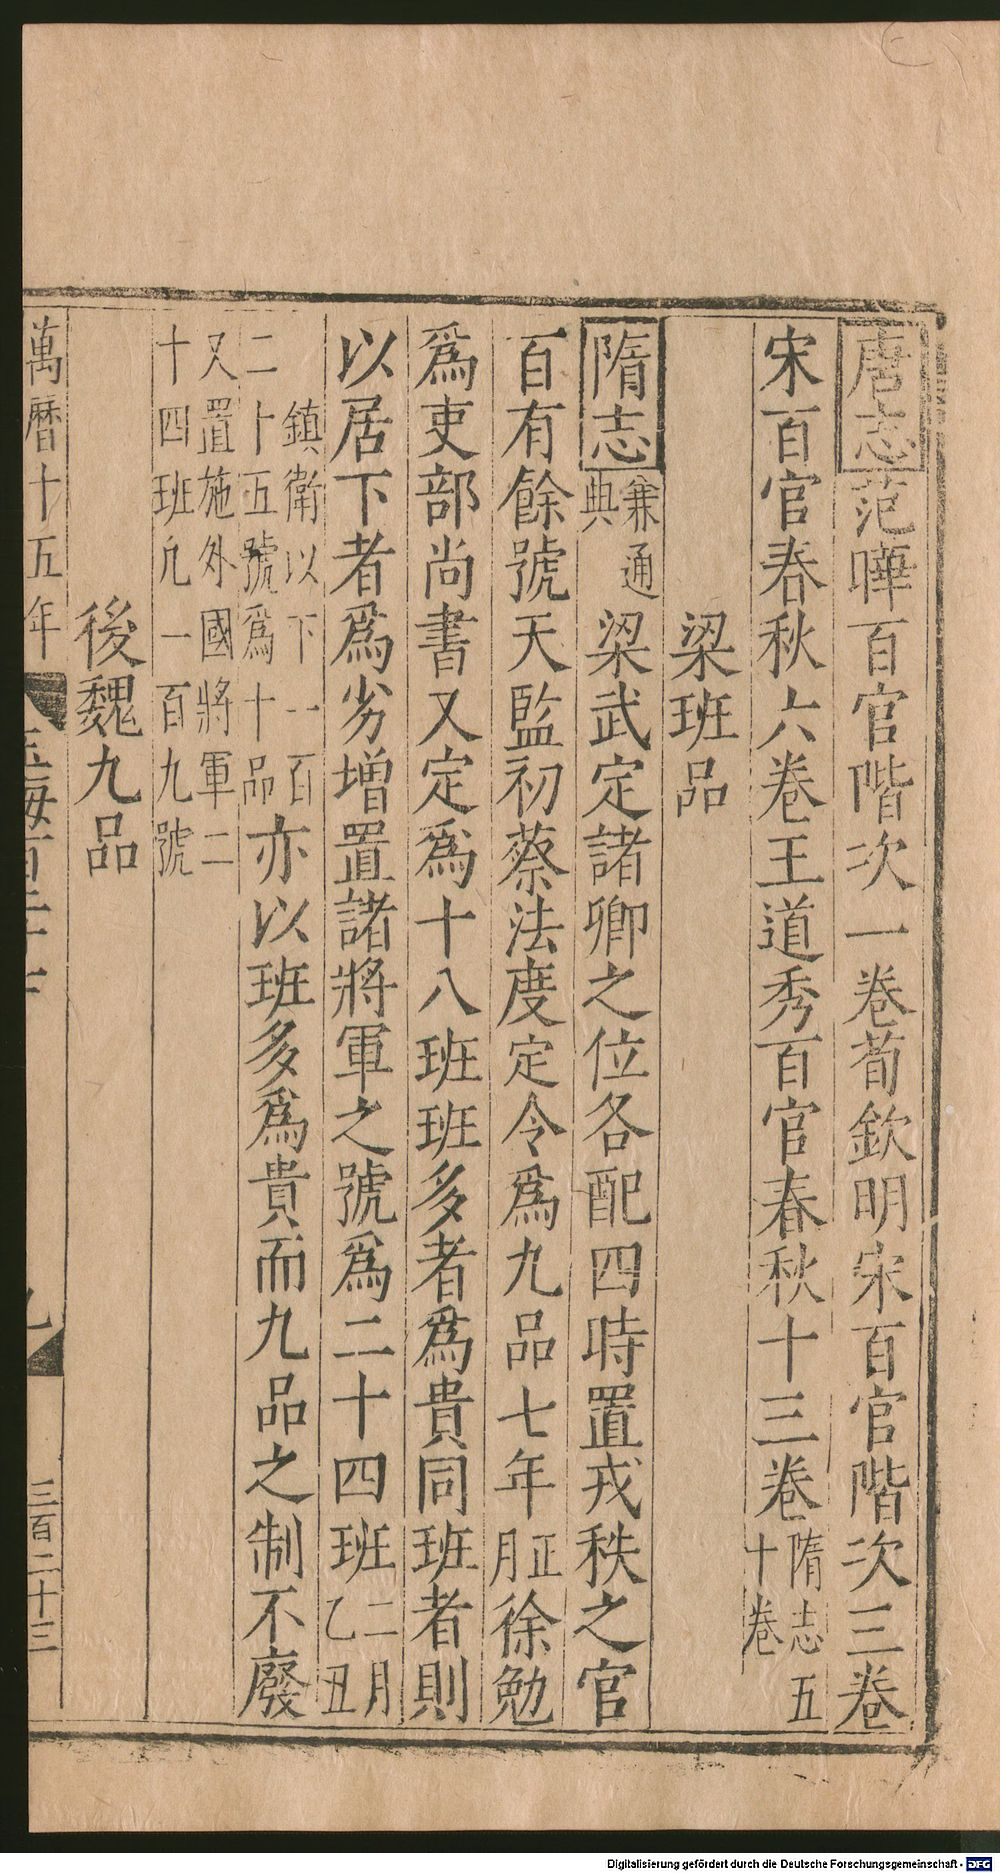 唐志范曄百官階次一卷荀欽明宋百官階次三卷
宋百官春秋六卷王道秀百官春秋十三卷隋志五十卷
梁班品
隋志兼通典梁武定諸卿之位各配四時置戎秩之官
百有餘號天監初蔡法度定令爲九品七年正月徐勉
爲吏部尚書又定爲十八班班多者爲貴同班者則
以居下者爲劣增置諸將軍之號爲二十四班二月乙丑
鎮衛以下一百二十五號爲十品亦以班多爲貴而九品之制不廢
又置施外國將軍二十四班凡一百九號
後魏九品
萬曆十五年
玉海百二十七
九
三百二十三
Digitalisierung gefördert durch die Deutsche Forschungsgemeinschaft - DFG